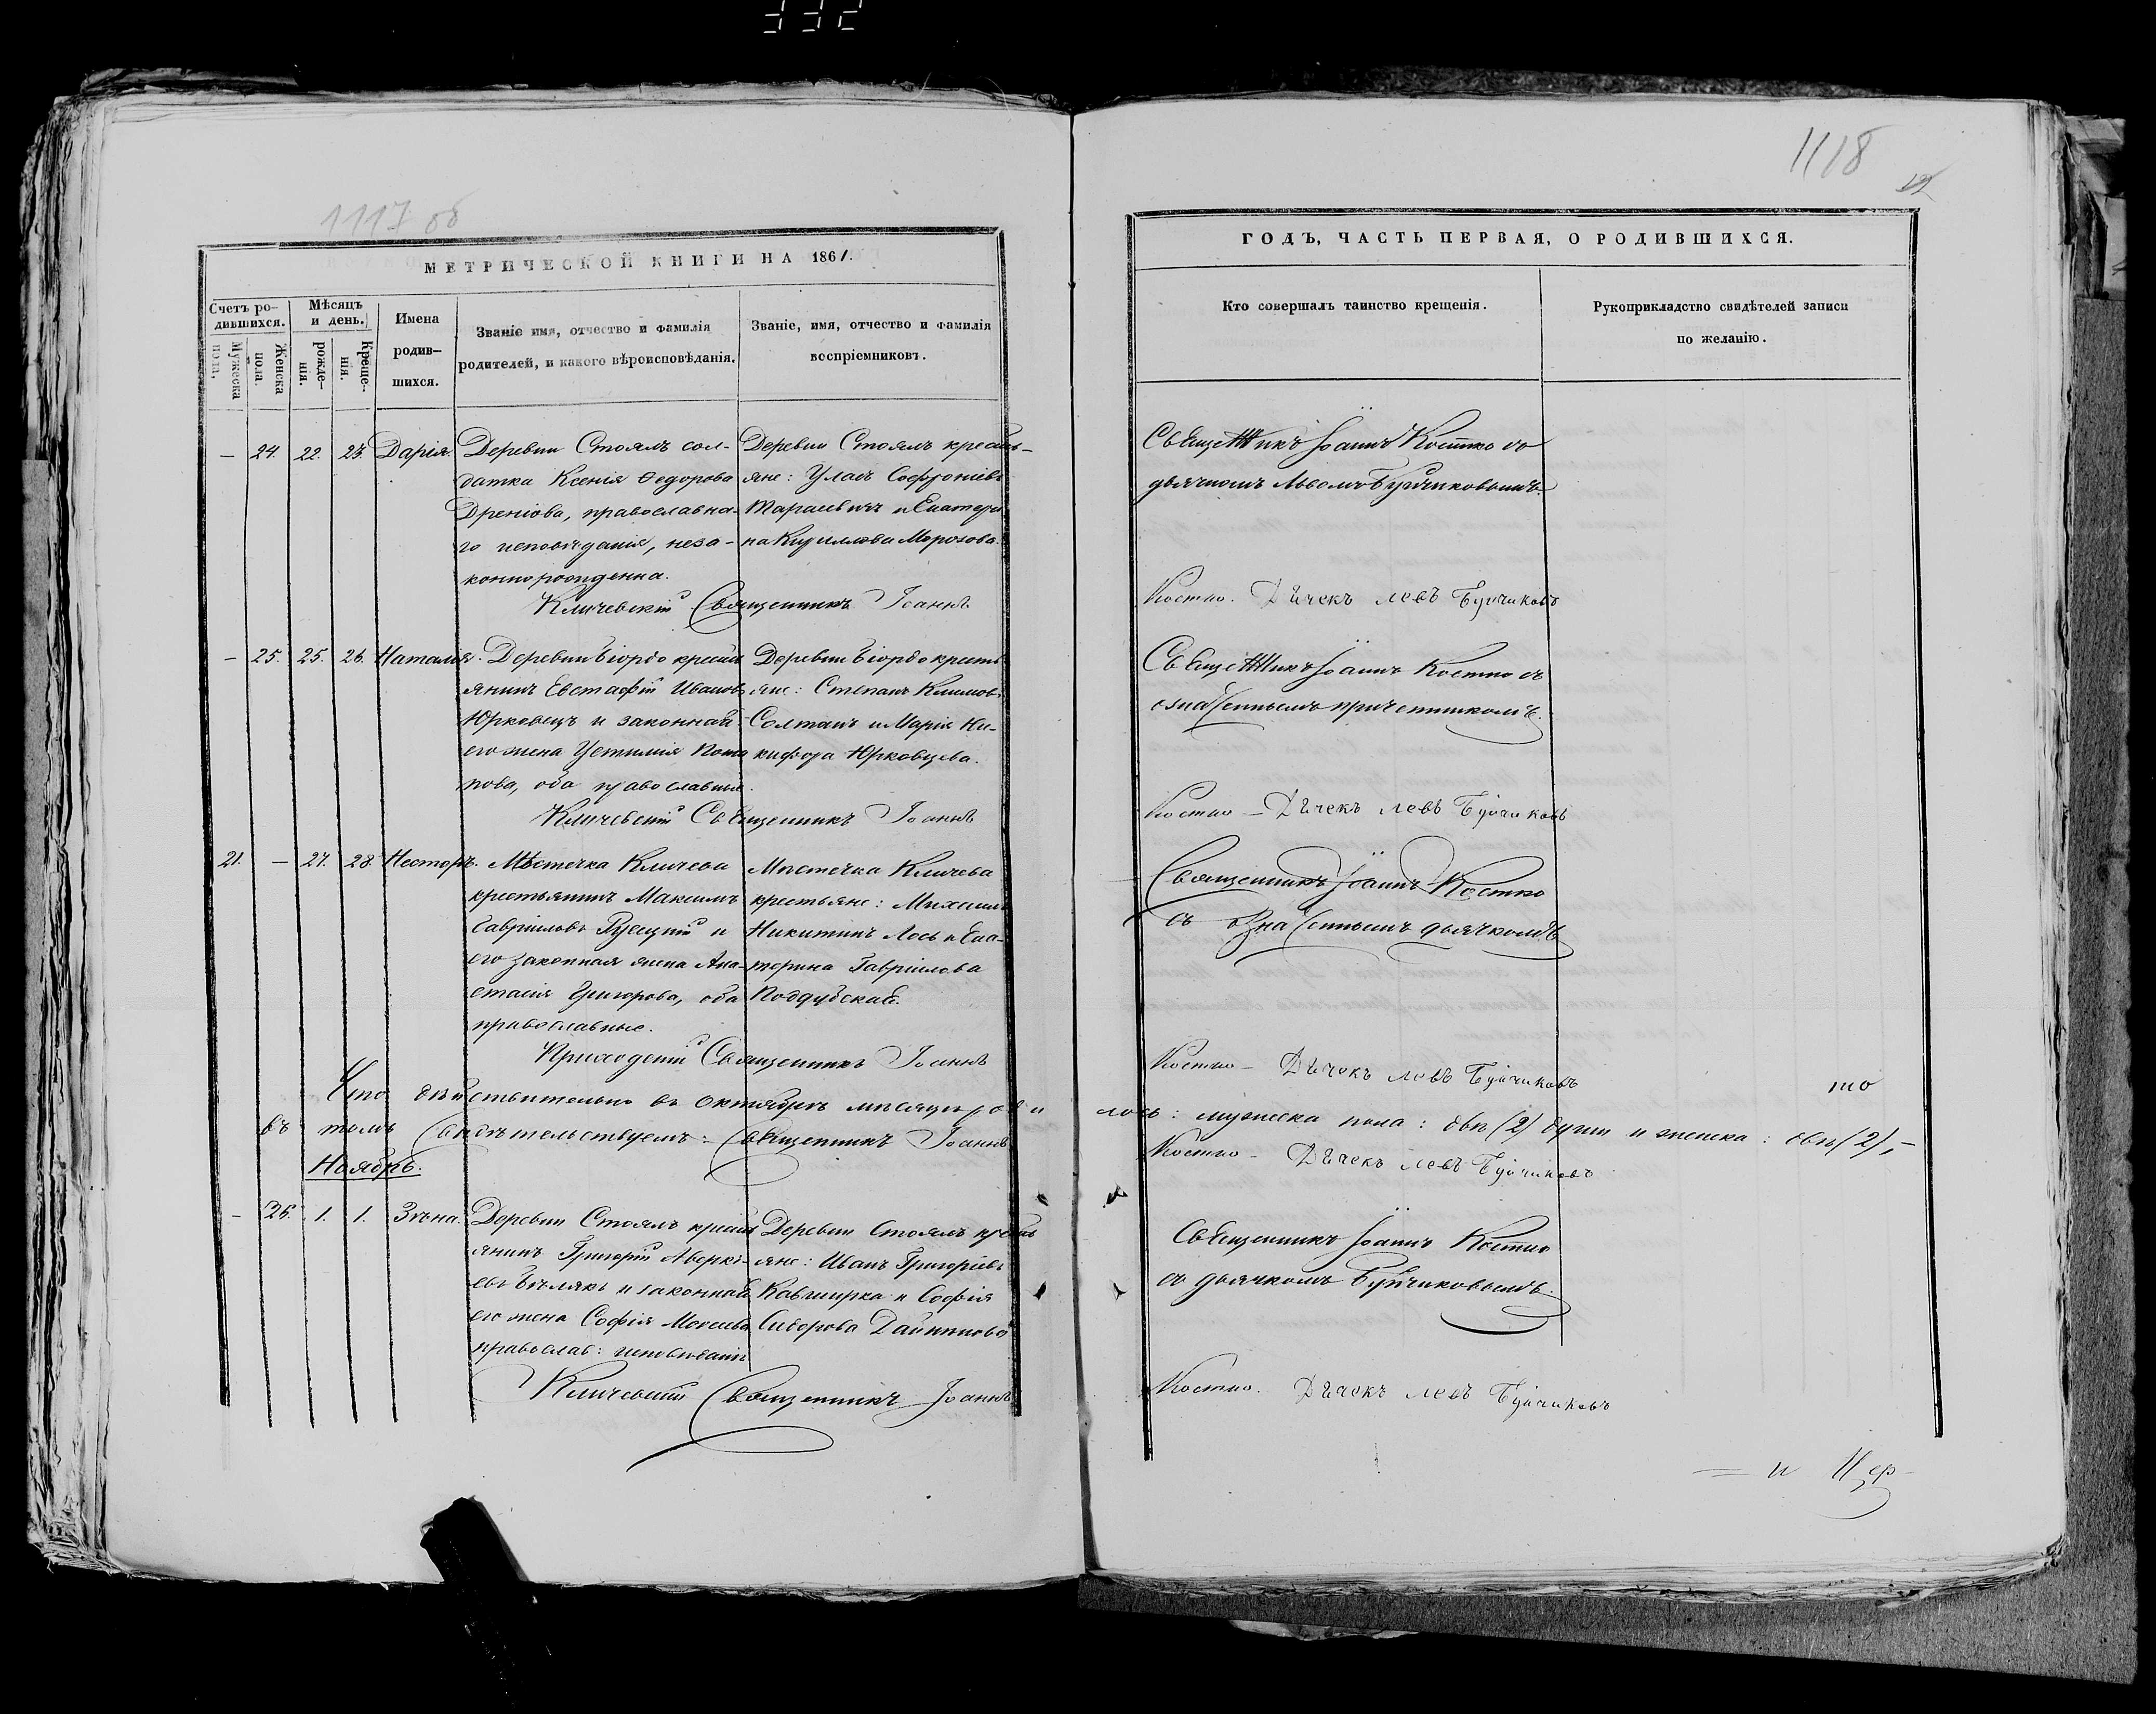 332
1117 об
МЕТРИЧЕСКОЙ КНИГИ НА 1861.
Счетъ ро-
дившихся.
Мужеска пола.
Женска пола.
Мѣсяцъ
и день.
рожде-
нія.
Креще-
нія.
Имена
родив-
шихся.
Званіе имя, отчество и фамилія
родителей, и какого вѣроисповѣданія.
Званіе, имя, отчество и фамилія
воспріемниковъ.
— 24. 22. 23. Дарія.
Деревни Стоялъ сол-
датка Ксенія Ѳедорова
Дреніова, православна-
го исповѣданія, неза-
конно рожденна.
Деревни Стоялъ кресть-
яне: Уласъ Софроніевъ
Тарасевичъ и Екатери
на Кириллова Морозова.
Кличевскій Священникъ Іоаннъ
— 25. 25. 26. Наталія.
Деревни Біордо кресть
янинъ Евстафій Ивановъ
Юрковецъ и законная
его жена Устинія Пота
пова, оба православные.
Деревни Біордо кресть
яне: Степанъ Климовъ
Солтанъ и Марія Ни-
кифора Юрковцева.
Кличевскій Священникъ Іоаннъ
21. — 27. 28. Несторъ.
Мѣстечка Кличева
крестьянинъ Максимъ
Гавріиловъ Русецкій и
его законная жена Ана-
стасія Григорова, оба
православные.
Мѣстечка Кличева
крестьяне: Михаилъ
Никитинъ Лось и Ека-
терина Гавріилова
Поддубская.
Приходскій Священникъ Іоаннъ
Что дѣйствительно въ Октябрѣ мѣсяцѣ роди
въ томъ свидѣтельствуемъ: Священникъ Іоаннъ
Ноябрь.
— 26. 1. 1.
Деревни Стоялъ кресть
янинъ Григорій Аверкі-
евъ Бѣлякъ и законная
его жена Софія Моисеева
православ: исповѣданія
Деревни Стоялъ кресть
яне: Иванъ Григоріевъ
Кавширка и Софія
Сидорова
Кличевскій Священникъ Іоаннъ
1118
ГОДЪ, ЧАСТЬ ПЕРВАЯ, О РОДИВШИХСЯ.
Кто совершалъ таинство крещенія.
Рукоприкладство свидѣтелей записи
по желанію.
Священникъ Іоаннъ Костко со
дьячкомъ Львомъ Буйчиковымъ.
Костко. Дьчекъ левъ Буйчиковъ
Священникъ Іоаннъ Костко съ
означеннымъ причетникомъ.
Костко — Дьчекъ левъ Буйчиковъ
Священникъ Іоаннъ Костко
съ означеннымъ дьячкомъ
Костко — Дьчекъ левъ Буйчиковъ
лось: мужеска пола: двѣ (2) души и женска: двѣ (2), — то
Костко — Дьчекъ левъ Буйчиковъ
Священникъ Іоаннъ Костко
со дьячкомъ Буйчиковымъ.
Костко. Дьчекъ левъ Буйчиковъ
= и Цер-